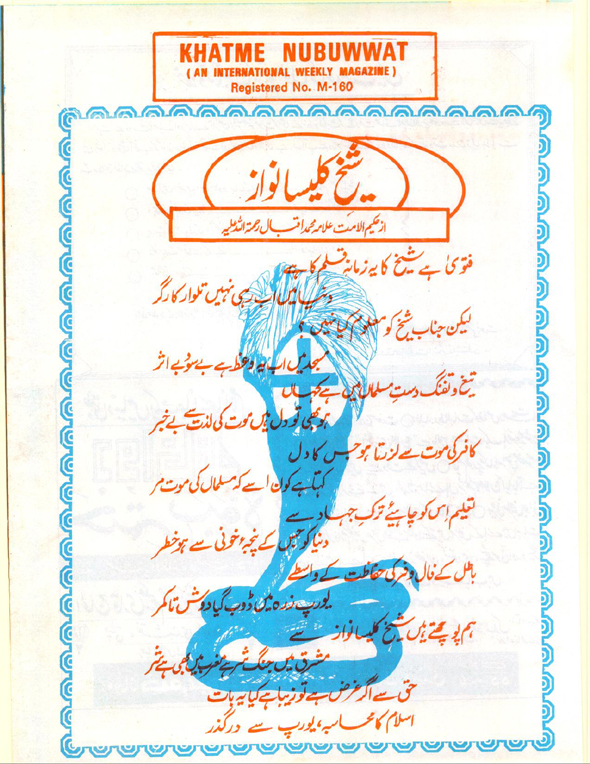 KHATME NUBUWWAT
( AN INTERNATIONAL WEEKLY MAGAZINE )
Registered No. M-160
شیخ کلیسا نواز
از حکیم الامت علامہ محمد اقبال رحمۃ اللہ علیہ
فتویٰ ہے شیخ کا یہ زمانہ قلم کا ہے
دنیا میں اب رہی نہیں تلوار کارگر
لیکن جناب شیخ کو معلوم کیا نہیں ؟
مسجد میں اب یہ وعظ ہے بے سود بے اثر
تیغ و تفنگ دست مسلماں میں ہے کہاں
ہو بھی تو دل ہیں موت کی لذت سے بے خبر
کافر کی موت سے لرزتا ہو جس کا دل
کہتا ہے کون اسے کہ مسلماں کی موت مر
تعلیم اس کو چاہیئے ترک جہاد سے
دنیا کو جس کے پنجۂ خونی سے ہو خطر
باطل کے فال و فر کی حفاظت کے واسطے
یورپ زرہ میں ڈوب گیا دوش تا کمر
ہم پوچھتے ہیں شیخ کلیسا نواز سے
مشرق میں جنگ شر ہے تو مغرب میں بھی ہے شر
حق سے اگر غرض ہے تو زیبا ہے کیا یہ بات
اسلام کا محاسبہ، یورپ سے درگذر